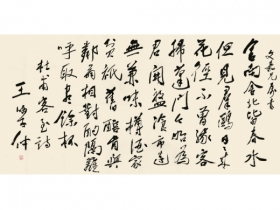 舍南舍北皆春水
但見群鷗日日來
花徑不曾緣客
掃蓬門今始為
君開盤飧市遠
無兼味樽酒家
貧祗舊醅肯與
鄰翁相對飲隔籬
呼取盡餘杯
杜甫客至詩
王學仲